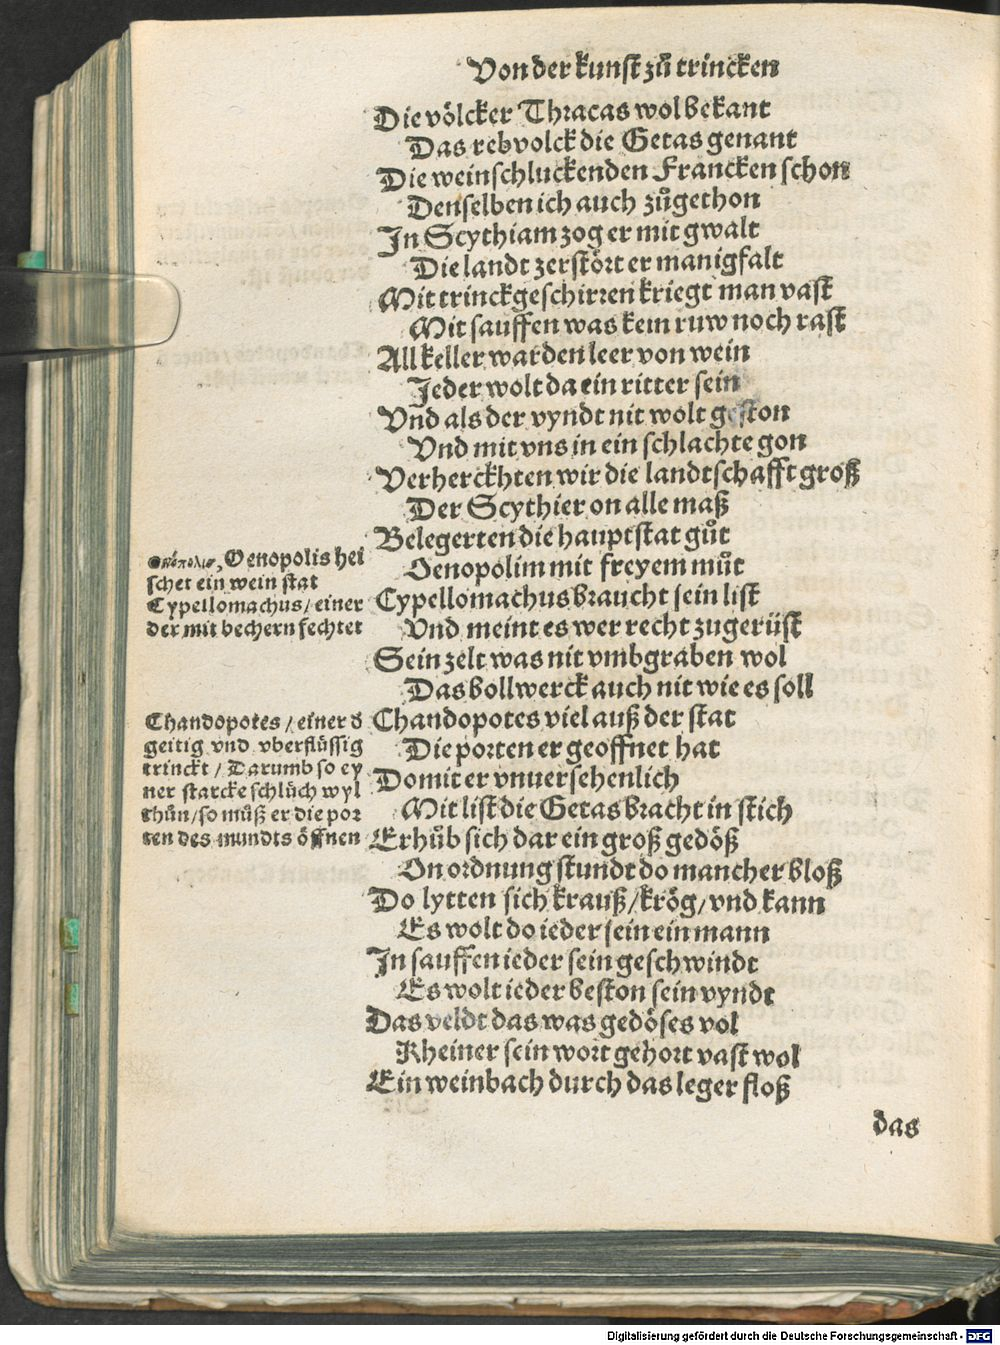 Von der kunst zů trincken
Die völcker Thracas wol bekant
Das rebvolck die Getas genant
Die weinschluckenden Francken schon
Denselben ich auch zůgethon
In Scythiam zog er mit gwalt
Die landt zerstört er manigfalt
Mit trinckgeschirren kriegt man vast
Mit sauffen was kein ruw noch rast
All keller warden leer von wein
Jeder wolt da ein ritter sein
Vnd als der vyndt nit wolt geston
Vnd mit vns in ein schlachte gon
Verherckhten wir die landtschafft groß
Der Scythier on alle maß
Belegerten die hauptstat gůt
Oenopolim mit freyem můt
Cypellomachus braucht sein list
Vnd meint es wer recht zugerüst
Sein zelt was nit vmbgraben wol
Das bollwerck auch nit wie es soll
Chandopotes viel auß der stat
Die porten er geoffnet hat
Domit er vnuersehenlich
Mit list die Getas bracht in stich
Erhůb sich dar ein groß gedöß
On ordnung stundt do mancher bloß
Do lytten sich krauß/krög/vnd kann
Es wolt do ieder sein ein mann
In sauffen ieder sein geschwindt
Es wolt ieder beston sein vyndt
Das veldt das was gedöses vol
Kheiner sein wort gehort vast wol
Ein weinbach durch das leger floß
das
οινόπολις, Oenopolis hei
schet ein wein stat
Cypellomachus/einer
der mit bechern fechtet
Chandopotes/einer d
geitig vnd vberflüssig
trinckt/Darumb so ey
ner starcke schlůch wyl
thůn/so můß er die por
ten des mundts öffnen
Digitalisierung gefördert durch die Deutsche Forschungsgemeinschaft - DFG